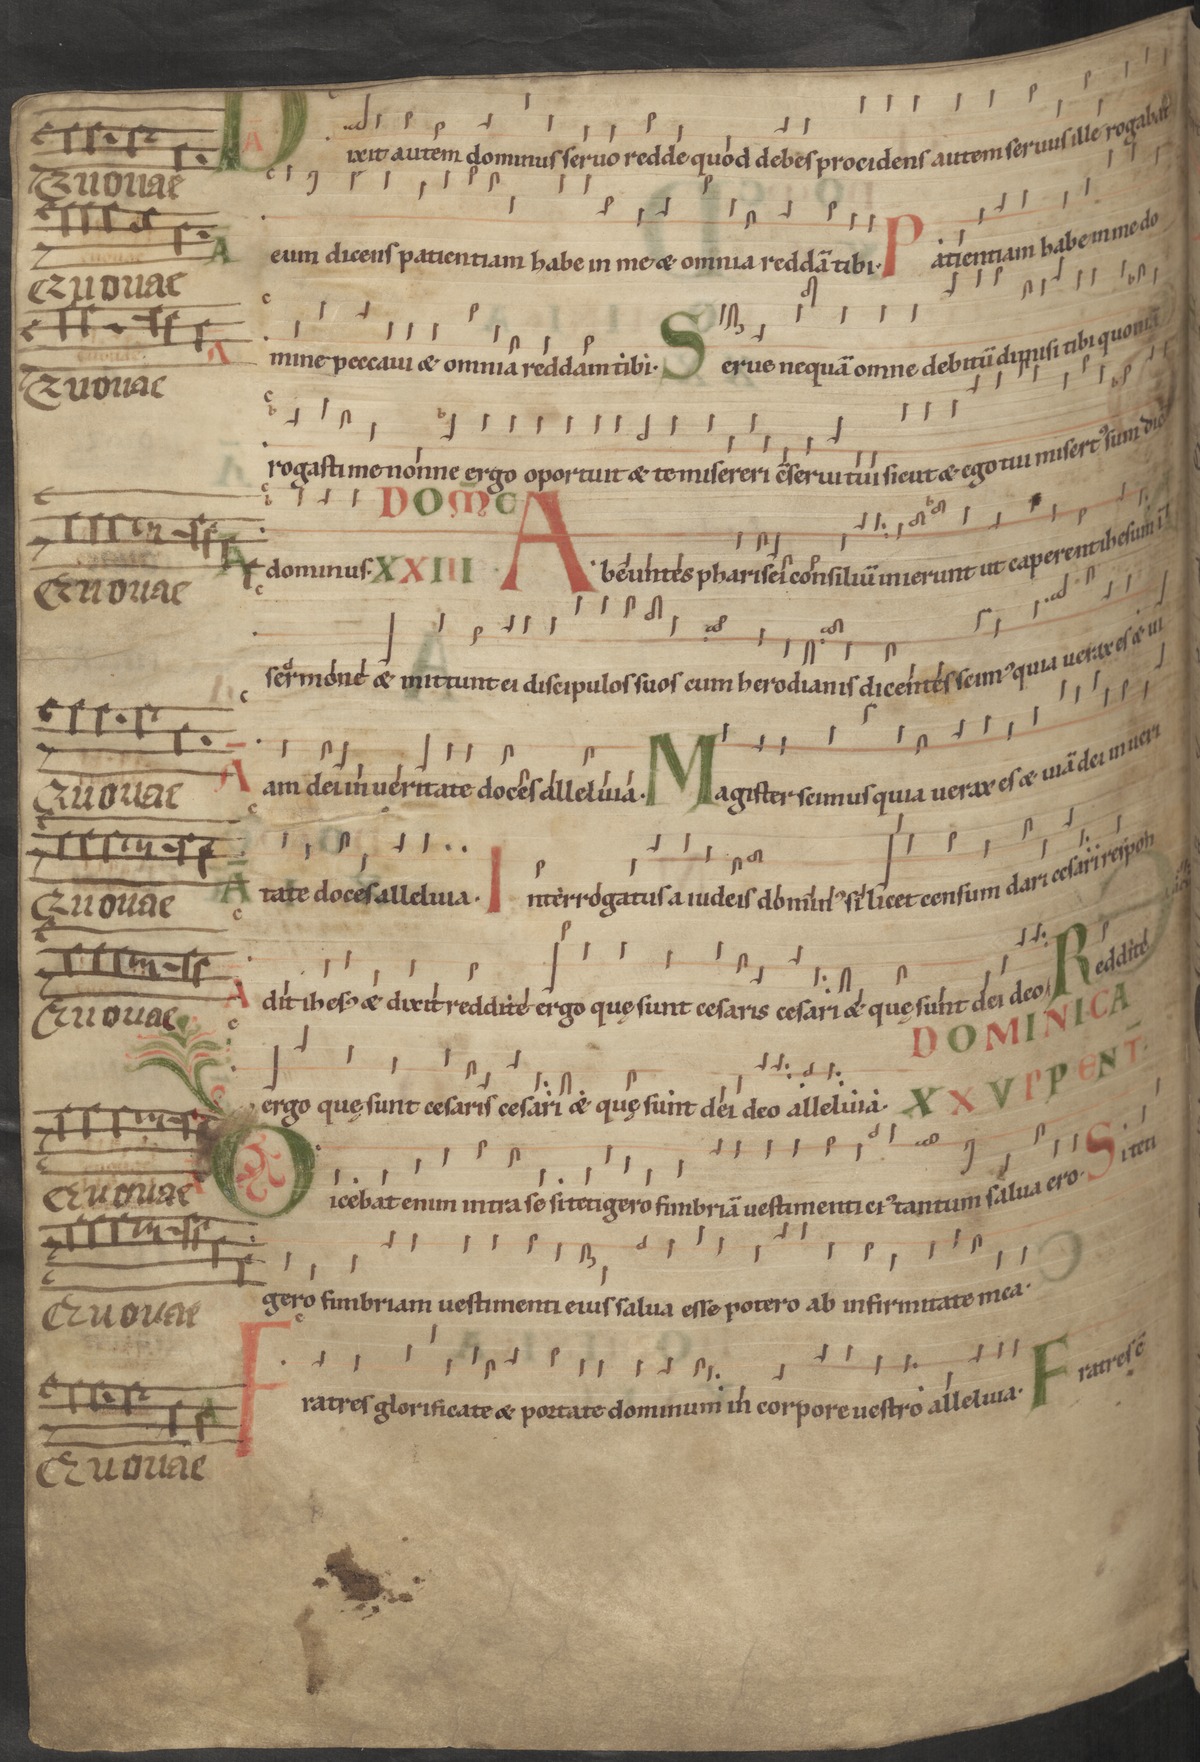 Dixit autem dominus seruo redde quod debes procidens autem seruus ille rogabat
Euouae
eum dicens patientiam habe in me & omnia reddā tibi. Patientiam habe in me do
Euouae
mine peccaui & omnia reddam tibi. Serue nequā omne debitū dimisi tibi quoniā
Euouae
rogasti me nonne ergo oportuit & te misereri c̄serui tui sicut & ego tui misertꝰ sum dic̄
dominus. DOM̄C XXIII Abeuntes pharisei consiliū inierunt ut caperent ihesum in
Euouae
sermone & mittunt ei discipulos suos cum herodianis dicentes scimꝰ quia uerax es & ui
am dei in ueritate doces alleluia. Magister scimus quia uerax es & uiā dei in ueri
Euouae
tate doces alleluia. Interrogatus a iudeis dominꝰ si licet censum dari cesari respon
Euouae
dit ihesꝰ & dixit reddite ergo quę sunt cesaris cesari & quę sunt dei deo Reddite
Euouae
ergo quę sunt cesaris cesari & quę sunt dei deo alleluia. DOMINICA
XXV P PENT̄.
Dicebat enim intra se si tetigero fimbriā uestimenti eiꝰ tantum salua ero. Si teti
Euouae
gero fimbriam uestimenti eius salua esse potero ab infirmitate mea.
Euouae
Fratres glorificate & portate dominum in corpore uestro alleluia. Fratres
Euouae